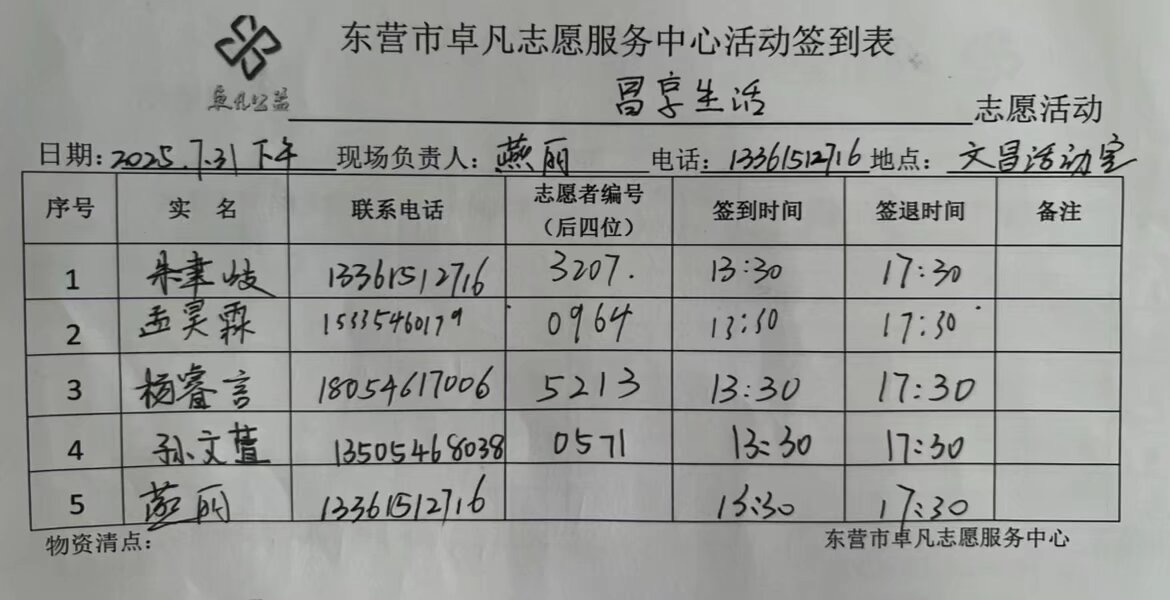 东营市卓凡志愿服务中心活动签到表
卓凡公益
昌享生活 志愿活动
日期：2025.7.31下午 现场负责人：燕丽 电话：13361512716 地点：文昌活动室
序号 实 名 联系电话 志愿者编号（后四位） 签到时间 签退时间 备注
1 朱聿岐 13361512716 3207. 13:30 17:30
2 孟昊霖 15335460179 0964 13:30 17:30
3 杨睿言 18054617006 5213 13:30 17:30
4 孙文萱 13505468038 0571 13:30 17:30
5 燕丽 13361512716 13:30 17:30
物资清点： 东营市卓凡志愿服务中心